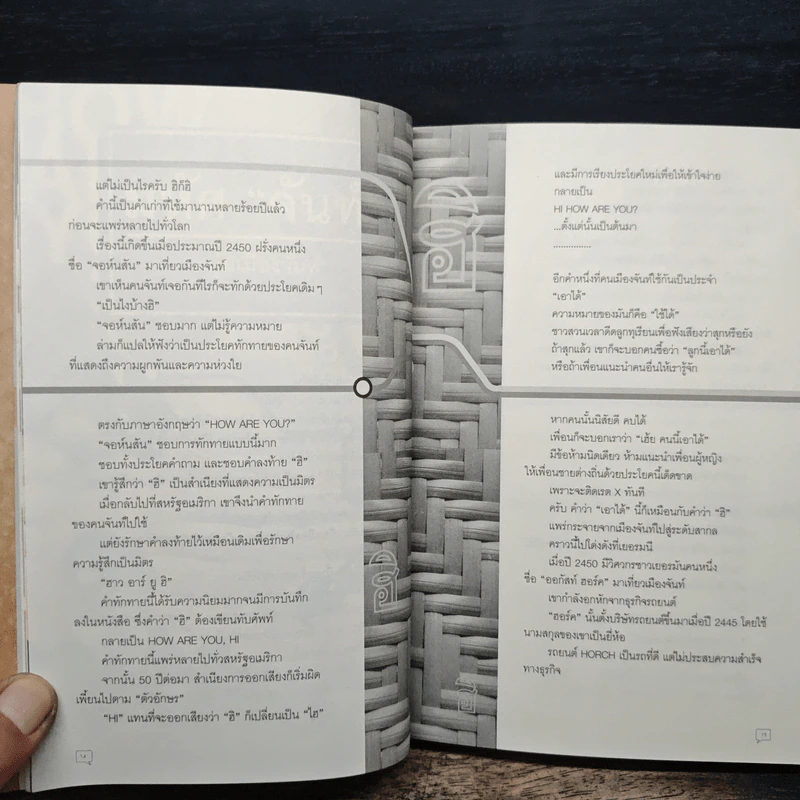 แต่ไม่เป็นไรครับ ฮิก็ฮิ
คำนี้เป็นคำเก่าที่ใช้มานานหลายร้อยปีแล้ว
ก่อนจะแพร่หลายไปทั่วโลก
เรื่องนี้เกิดขึ้นเมื่อประมาณปี 2450 ฝรั่งคนหนึ่ง
ชื่อ “จอห์นสัน” มาเที่ยวเมืองจันท์
เขาเห็นคนจันท์เจอกันทีไรก็จะทักด้วยประโยคเดิมๆ
“เป็นไงบ้างฮิ”
“จอห์นสัน” ชอบมาก แต่ไม่รู้ความหมาย
ล่ามก็แปลให้ฟังว่าเป็นประโยคทักทายของคนจันท์
ที่แสดงถึงความผูกพันและความห่วงใย
ตรงกับภาษาอังกฤษว่า “HOW ARE YOU?”
“จอห์นสัน” ชอบการทักทายแบบนี้มาก
ชอบทั้งประโยคคำถาม และชอบคำลงท้าย “ฮิ”
เขารู้สึกว่า “ฮิ” เป็นสำเนียงที่แสดงความเป็นมิตร
เมื่อกลับไปที่สหรัฐอเมริกา เขาจึงนำคำทักทาย
ของคนจันท์ไปใช้
แต่ยังรักษาคำลงท้ายไว้เหมือนเดิมเพื่อรักษา
ความรู้สึกเป็นมิตร
“ฮาว อาร์ ยู ฮิ”
คำทักทายนี้ได้รับความนิยมมากจนมีการบันทึก
ลงในหนังสือ ซึ่งคำว่า “ฮิ” ต้องเขียนทับศัพท์
กลายเป็น HOW ARE YOU, HI
คำทักทายนี้แพร่หลายไปทั่วสหรัฐอเมริกา
จากนั้น 50 ปีต่อมา สำเนียงการออกเสียงก็เริ่มผิด
เพี้ยนไปตาม “ตัวอักษร”
“HI” แทนที่จะออกเสียงว่า “ฮิ” ก็เปลี่ยนเป็น “ไฮ”
14
และมีการเรียงประโยคใหม่เพื่อให้เข้าใจง่าย
กลายเป็น
HI HOW ARE YOU?
...ตั้งแต่นั้นเป็นต้นมา
...............
อีกคำหนึ่งที่คนเมืองจันท์ใช้กันเป็นประจำ
“เอาได้”
ความหมายของมันก็คือ “ใช้ได้”
ชาวสวนเวลาดีดลูกทุเรียนเพื่อฟังเสียงว่าสุกหรือยัง
ถ้าสุกแล้ว เขาก็จะบอกคนซื้อว่า “ลูกนี้เอาได้”
หรือถ้าเพื่อนแนะนำคนอื่นให้เรารู้จัก
หากคนนั้นนิสัยดี คบได้
เพื่อนก็จะบอกเราว่า “เฮ้ย คนนี้เอาได้”
มีข้อห้ามนิดเดียว ห้ามแนะนำเพื่อนผู้หญิง
ให้เพื่อนชายต่างถิ่นด้วยประโยคนี้เด็ดขาด
เพราะจะติดเรต X ทันที
ครับ คำว่า “เอาได้” นี้ก็เหมือนกับคำว่า “ฮิ”
แพร่กระจายจากเมืองจันท์ไปสู่ระดับสากล
คราวนี้ไปโด่งดังที่เยอรมนี
เมื่อปี 2450 มีวิศวกรชาวเยอรมันคนหนึ่ง
ชื่อ “ออกัสท์ ฮอร์ค” มาเที่ยวเมืองจันท์
เขากำลังอกหักจากธุรกิจรถยนต์
“ฮอร์ค” นั้นตั้งบริษัทรถยนต์ขึ้นมาเมื่อปี 2445 โดยใช้
นามสกุลของเขาเป็นยี่ห้อ
รถยนต์ HORCH เป็นรถที่ดี แต่ไม่ประสบความสำเร็จ
ทางธุรกิจ
15